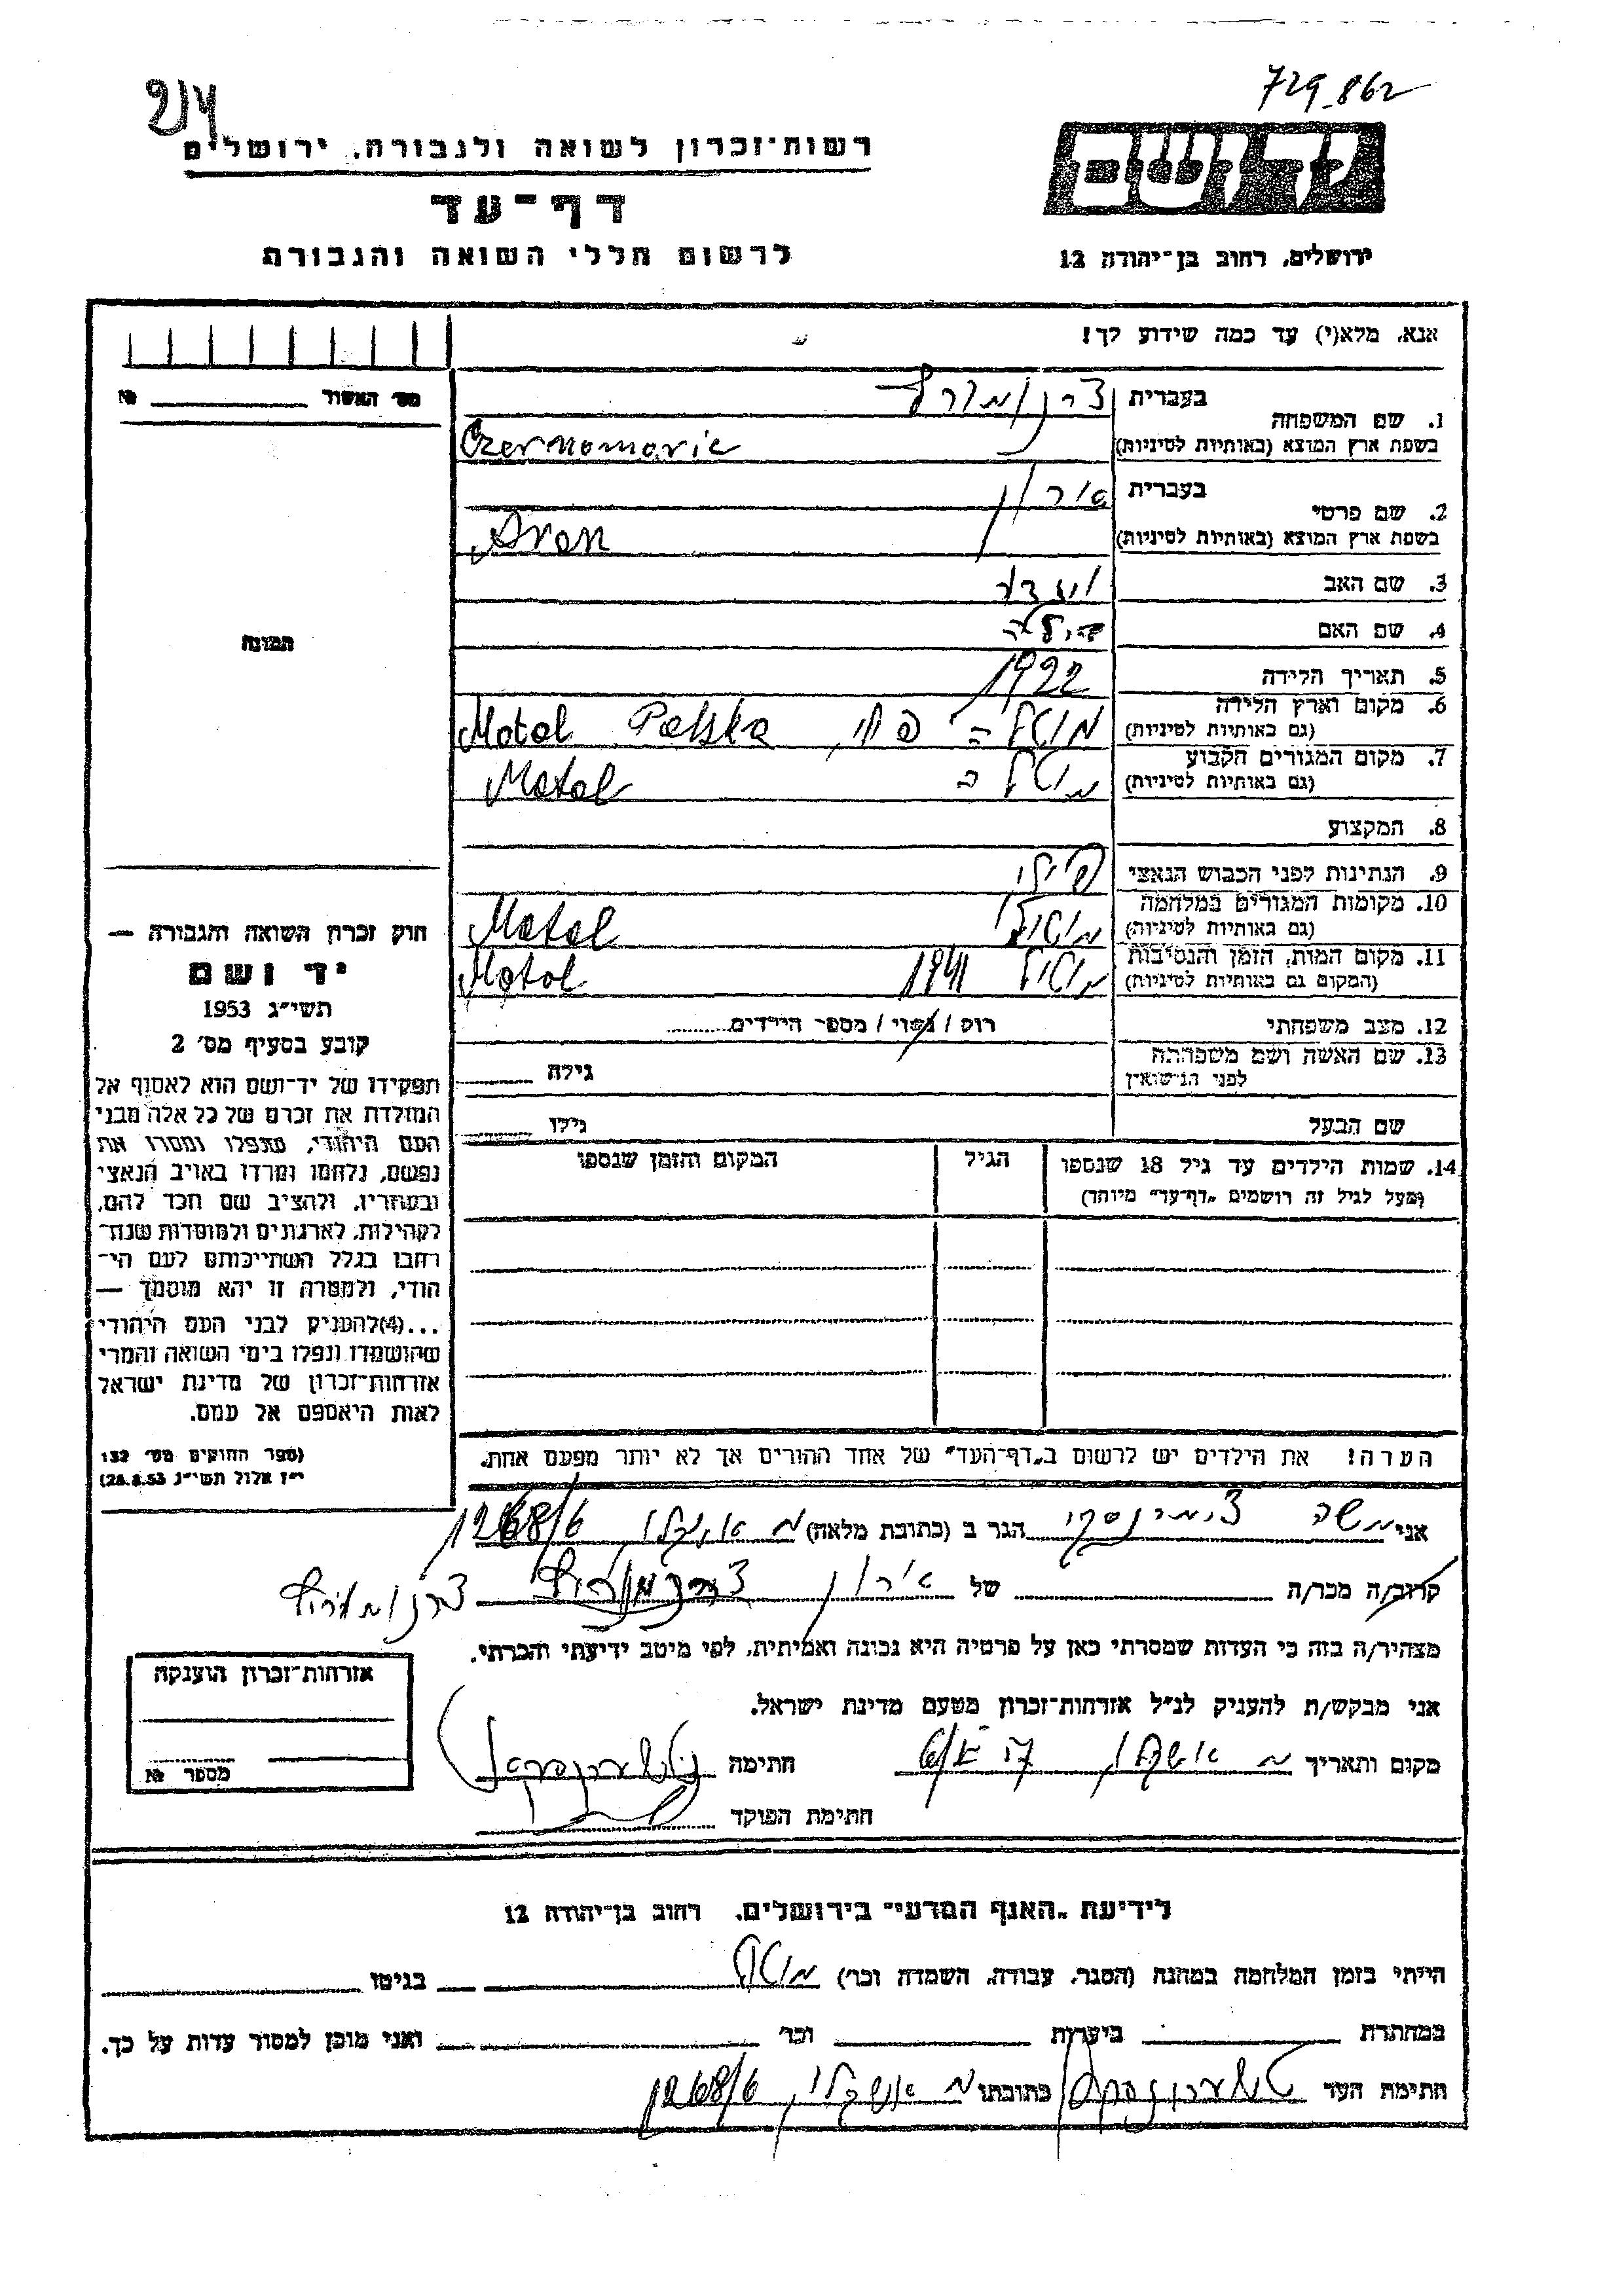 729862
רשות־זכרון לשואה ולגבורה, ירושלים
דף־עד
לרשום חללי השואה והגבורה
יד ושם
ירושלים, רחוב בן־יהודה 12
אנא, מלא(י) עד כמה שידוע לך!
מס' האשור №
תמונה
1. שם המשפחה
בעברית
בשפת ארץ המוצא (באותיות לטיניות) Czernomoric
2. שם פרטי
בעברית אורן
בשפת ארץ המוצא (באותיות לטיניות) Aron
3. שם האב
4. שם האם
5. תאריך הלידה 1922
6. מקום וארץ הלידה
(גם באותיות לטיניות) Motol Polska
7. מקום המגורים הקבוע
(גם באותיות לטיניות) Motol
8. המקצוע
9. הנתינות לפני הכבוש הנאצי
10. מקומות המגורים במלחמה
(גם באותיות לטיניות) מוטול Motol
11. מקום המות, הזמן והנסיבות
(המקום גם באותיות לטיניות) מוטול 1941 Motol
12. מצב משפחתי רווק / נשוי / מספר הילדים
13. שם האשה ושם משפחתה
לפני הנישואין גילה
שם הבעל גילו
14. שמות הילדים עד גיל 18 שנספו
(מעל לגיל זה רושמים "דף־עד" מיוחד)
הגיל
המקום והזמן שנספו
הערה! את הילדים יש לרשום ב"דף־העד" של אחד ההורים אך לא יותר מפעם אחת.
חוק זכרון השואה והגבורה —
יד ושם
תשי"ג 1953
קובע בסעיף מס' 2
תפקידו של יד־ושם הוא לאסוף אל
המולדת את זכרם של כל אלה מבני
העם היהודי, שנפלו ומסרו את
נפשם, נלחמו ומרדו באויב הנאצי
ובעוזריו, ולהציב שם וזכר להם,
לקהילות, לארגונים ולמוסדות שנח־
רבו בגלל השתייכותם לעם הי־
הודי, ולמטרה זו יהא מוסמך —
...(4)להעניק לבני העם היהודי
שהושמדו ונפלו בימי השואה והמרי
אזרחות־זכרון של מדינת ישראל
לאות היאספם אל עמם.
(ספר החוקים מס' 132
י"ז אלול תשי"ג 28.8.53)
אני משה הגר ב (כתובת מלאה) 1268/6
קרוב/ה מכר/ה של אורן
מצהיר/ה בזה כי העדות שמסרתי כאן על פרטיה היא נכונה ואמיתית, לפי מיטב ידיעתי והכרתי.
אני מבקש/ת להעניק לנ"ל אזרחות־זכרון מטעם מדינת ישראל.
מקום ותאריך חתימה
חתימת הפוקד
אזרחות־זכרון הוענקה
מספר №
לידיעת "האגף המדעי" בירושלים, רחוב בן־יהודה 12
הייתי בזמן המלחמה במחנה (הסגר, עבודה, השמדה וכו') מוטול בגיטו
במחתרת ביערות וכו' ואני מוכן למסור עדות על כך.
חתימת העד כתובתו 1268/6